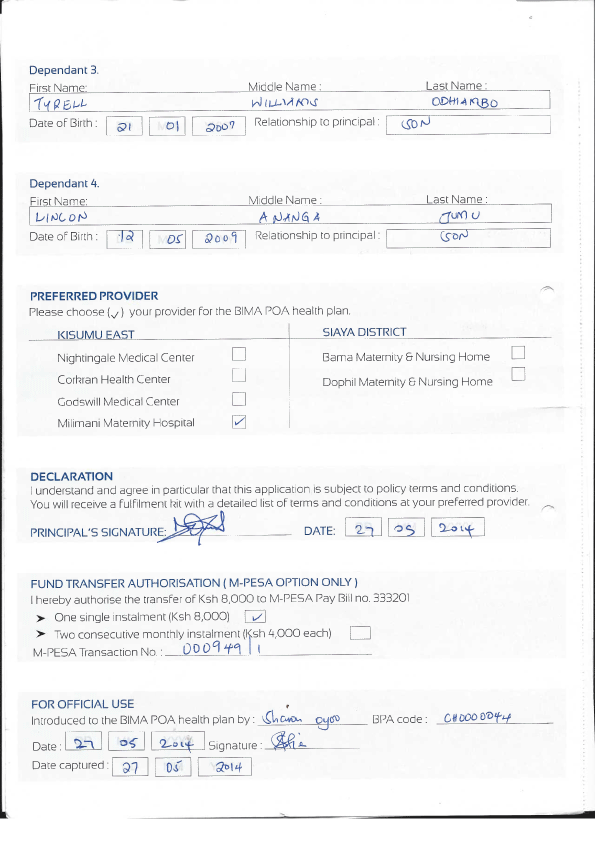 Dependant 3.
First Name: Middle Name : Last Name :
TYRELL WILLIAMS ODHIAMBO
Date of Birth : 21 01 2007 Relationship to principal : SON
Dependant 4.
First Name: Middle Name : Last Name :
LINCON ANANGA JUMU
Date of Birth : 12 05 2009 Relationship to principal : SON
PREFERRED PROVIDER
Please choose (✓) your provider for the BIMA POA health plan.
KISUMU EAST SIAYA DISTRICT
Nightingale Medical Center Bama Maternity & Nursing Home
Corkran Health Center Dophil Maternity & Nursing Home
Godswill Medical Center
Milimani Maternity Hospital ✓
DECLARATION
I understand and agree in particular that this application is subject to policy terms and conditions.
You will receive a fulfilment kit with a detailed list of terms and conditions at your preferred provider.
PRINCIPAL'S SIGNATURE: DATE: 27 05 2014
FUND TRANSFER AUTHORISATION ( M-PESA OPTION ONLY )
I hereby authorise the transfer of Ksh 8,000 to M-PESA Pay Bill no. 333201
➤ One single instalment (Ksh 8,000) ✓
➤ Two consecutive monthly instalment (Ksh 4,000 each)
M-PESA Transaction No. : 00094911
FOR OFFICIAL USE
Introduced to the BIMA POA health plan by : Sharon oyoo BPA code : CH0000044
Date : 27 05 2014 Signature :
Date captured : 27 05 2014